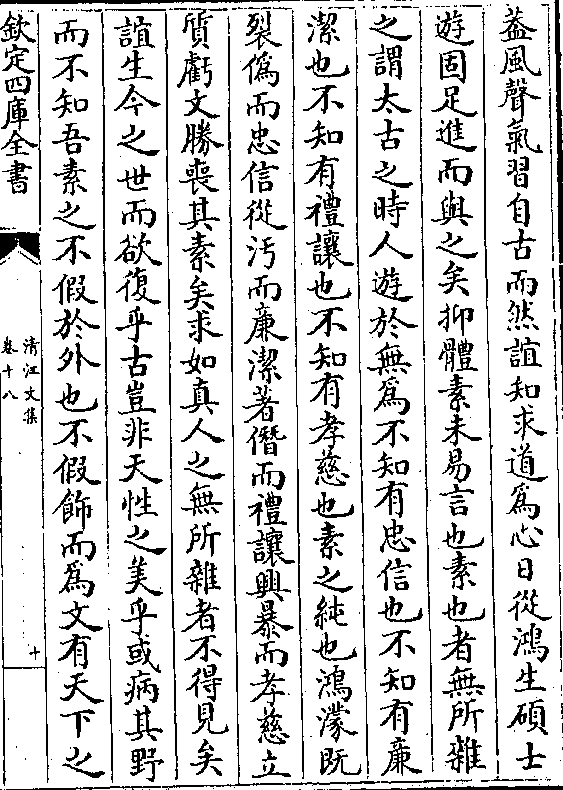 葢風聲氣習自古而然誼知求道為心日從鴻生碩士
遊固足進而與之矣抑體素未易言也素也者無所雜
之謂太古之時人遊於無為不知有忠信也不知有廉
潔也不知有禮讓也不知有孝慈也素之純也鴻濛既
裂僞而忠信從汚而廉潔著僭而禮讓興暴而孝慈立
質虧文勝喪其素矣求如真人之無所雜者不得見矣
誼生今之世而欲復乎古豈非天性之美乎或病其野
而不知吾素之不假於外也不假飾而為文有天下之
欽定四庫全書
清江文集
卷十八
十